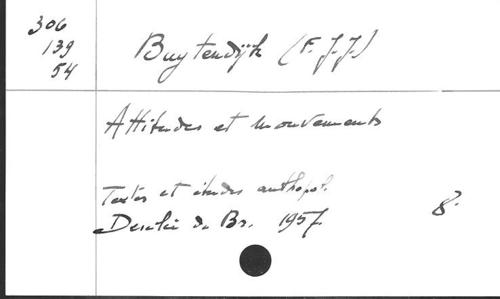 306
139
54
Buytendijk (F. J. J.)
Attitudes et mouvements
Textes et études anthropol.
Desclée de Br. 1957.
8°